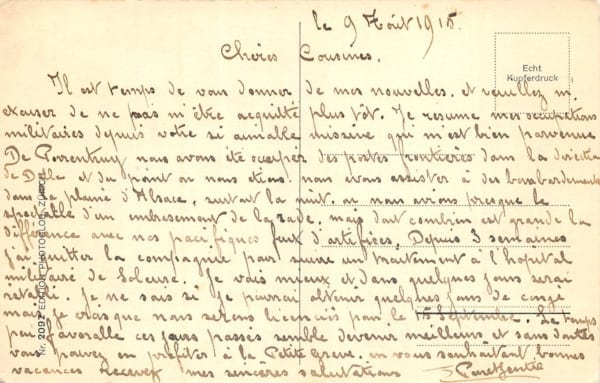 le 9 Août 1915.
Chères Cousines.
Echt
Kupferdruck
Il est temps de vous donner de mes nouvelles. et veuillez m'
excuser de ne pas m'être acquitté plus tôt. Je resume mes occupations
militaires depuis votre si aimable missive qui m'est bien parvenue
De Porrentruy nous avons été occuper des postes frontières dans la direction
de Delle et du point où nous étions. nous avons assister à des bombardements
dans la plaine d'Alsace, surtout la nuit. où nous avons presque le
spectacle d'un embrasement de la rade, mais dont combien est grande la
différence avec nos pacifiques feux d'artifices. Depuis 3 semaines
j'ai quitter la compagnie pour suivre un traitement à l'hopital
militaire de Soleure. Je vais mieux et dans quelques jours serai
retabli. Je ne sais si je pourrai obtenir quelques jours de congé
mais je crois que nous serons licenciés pour le Septembre. Le temps
peu favorable ces jours passés semble devenir meilleurs et sans doutes
vous pouvez en profiter à la Petite Grave. en vous souhaitant bonnes
vacances recevez mes sincères salutations
Nr. 2092 EDITION PHOTOGLOB, ZÜRICH